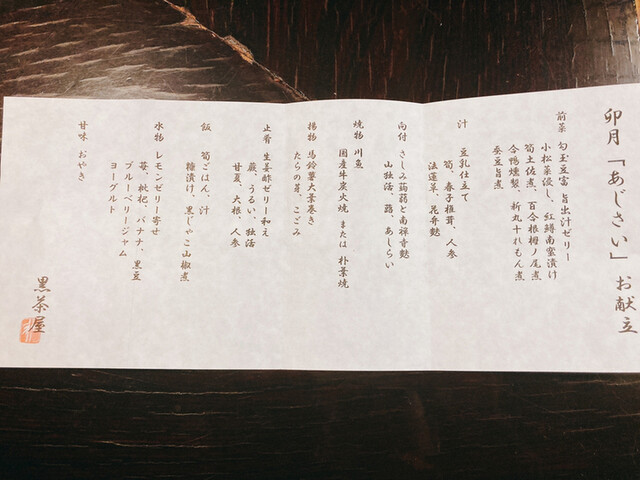 卯月「あじさい」お献立
前菜 勾玉豆富 旨出汁ゼリー
小松菜浸し、紅鱒南蛮漬け
筍土佐煮、百合根梅ノ尾煮
合鴨燻製、新丸十れもん煮
蚕豆旨煮
汁 豆乳仕立て
筍、春子椎茸、人参
法蓮草、花弁麩
向付 さしみ蒟蒻と南禅寺麩
山独活、蕗、あしらい
焼物 川魚
国産牛炭火焼 または 朴葉焼
揚物 馬鈴薯大葉巻き
たらの芽、こごみ
止肴 生姜酢ゼリー和え
蕨、うるい、独活
甘夏、大根、人参
飯 筍ごはん、汁
糠漬け、黒じゃこ山椒煮
水物 レモンゼリー寄せ
苺、枇杷、バナナ、黒豆
ブルーベリージャム
ヨーグルト
甘味 おやき
黒茶屋